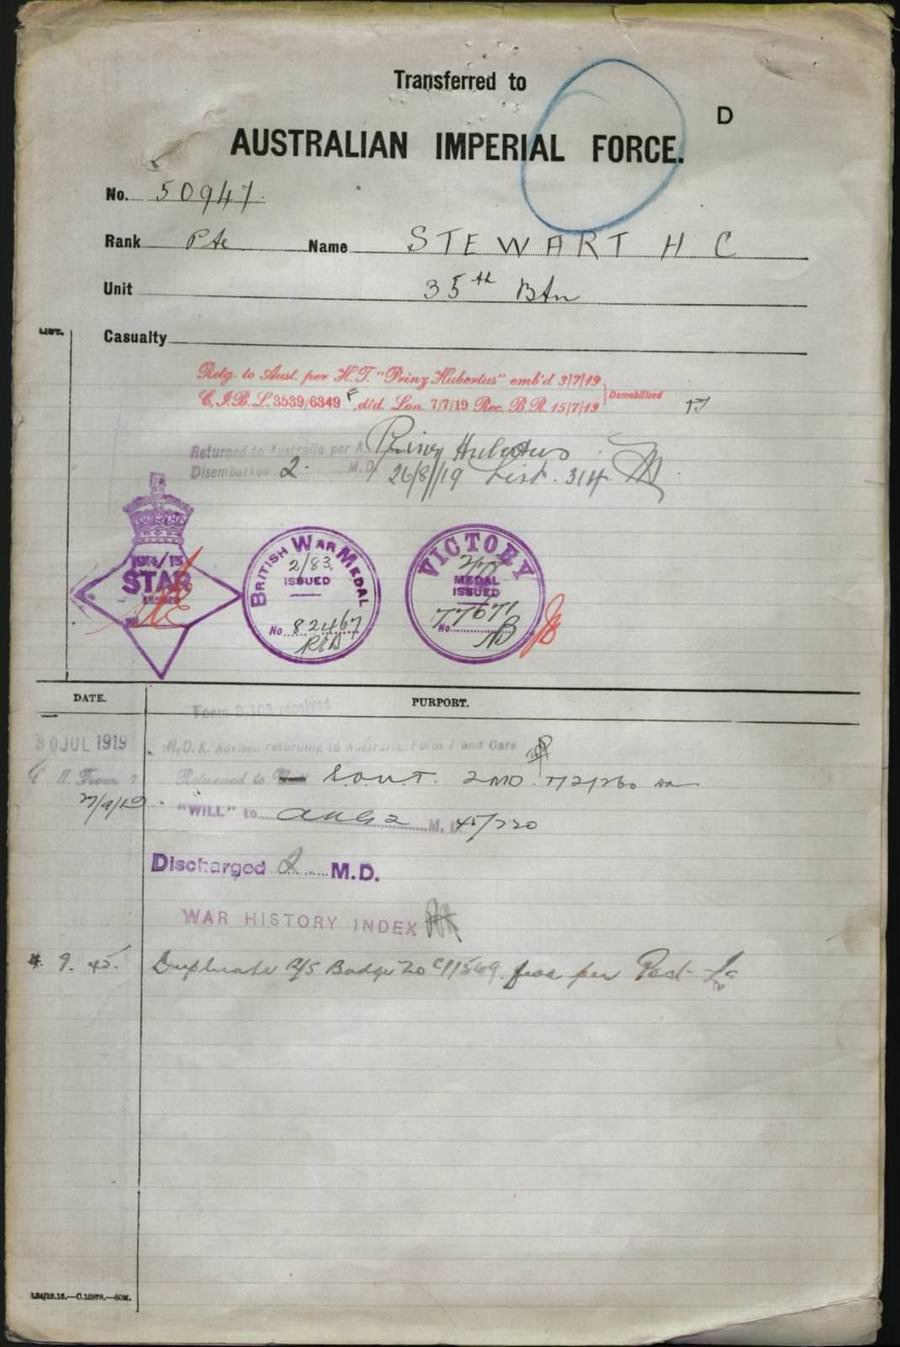 Transferred to
D
AUSTRALIAN IMPERIAL FORCE.
No. 50947.
Rank Pte Name STEWART H C
Unit 35th Btn
LIST.
Casualty
Retg. to Aust. per H.T. "Prinz Hubertus" emb'd 3/7/19
C.I.B.L. 3539/6349 F dtd. Lon. 7/7/19 Rec. B.R. 15/7/19 Demobilised 17
Returned to Australia per Prinz Hubertus
Disembarked 2. M.D. 26/8/19 List. 314
1914/15
STAR
BRITISH WAR MEDAL
2/83
ISSUED
No. 82467
VICTORY
MEDAL
ISSUED
No. 77671
DATE. PURPORT.
Form B.103 received
30 JUL 1919 H.Q.K. Advised returning to Australia. Form 7 and
Returned to 2MD
27/9/19 "WILL" to M. 45/720
Discharged 2 M.D.
WAR HISTORY INDEX
4. 9. 45. Duplicate R/S Badge No C11569 per Post